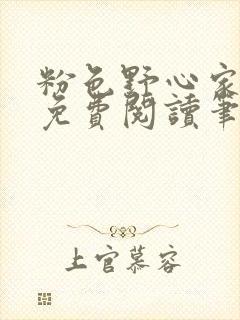 粉色野心家
免費閱讀筆
上官慕容